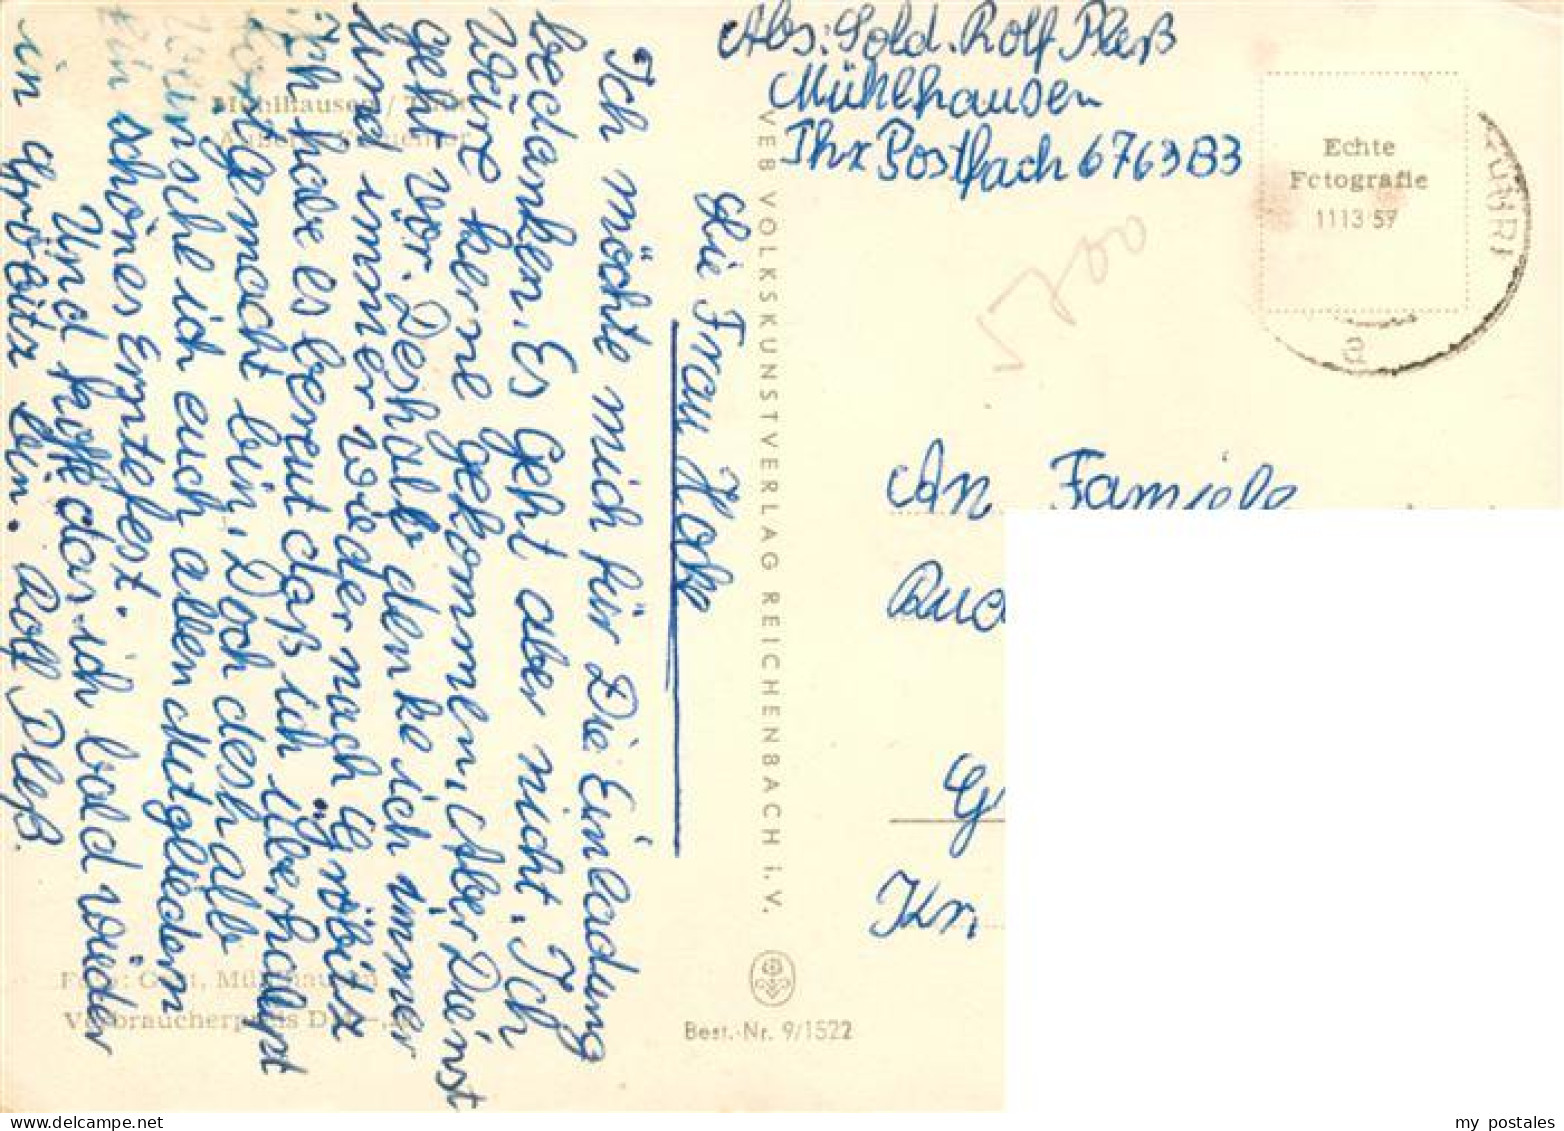 Abs: Sold. Rolf Pleß
Mühlhausen
Thür Postfach 6763B3
Echte
Fotografie
1113 59
5700
Mühlhausen / Thür.
Lie Frau Hoke
Ich möchte mich für Die Einladung
bedanken. Es geht aber nicht. Ich
wäre kerne gekommen. Aber Dienst
geht vor. Deshalb denke ich immer
und immer wieder nach Gröbitz
Ich habe es bereut daß ich überhaupt
gemacht bin, Doch deshalb
Wünsche ich euch allen Mitgliedern
Ein schönes Erntefest.
Und hoffe das ich bald wieder
in Gröbitz bin. Rolf Pleß.
VEB VOLKSKUNSTVERLAG REICHENBACH i. V.
An Familie
Rud
G
Kr.
Foto: Mühlhausen
Verbraucherpreis
Best.-Nr. 9/1522
my postales